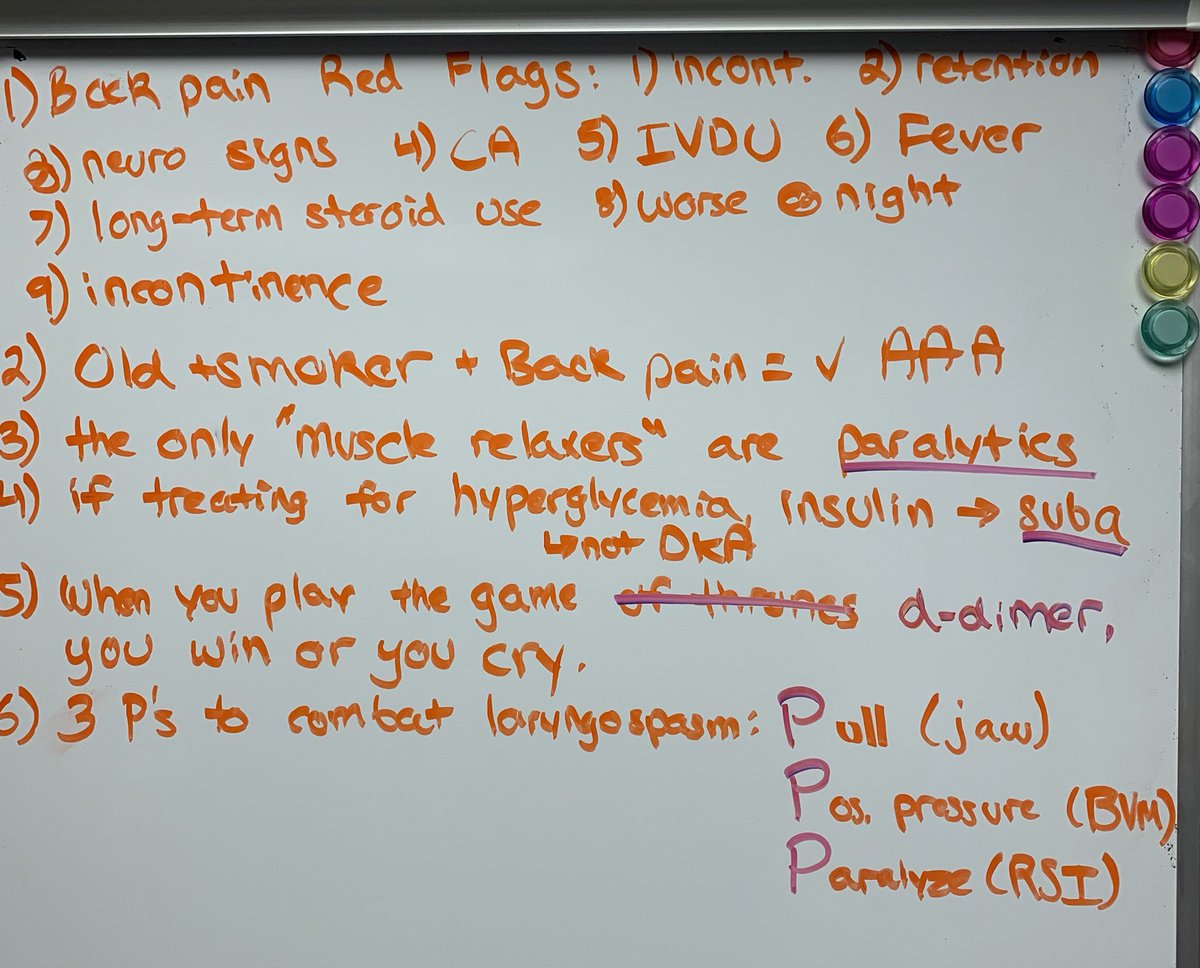 1) Back pain Red Flags: 1) incont. 2) retention
3) neuro signs 4) CA 5) IVDU 6) Fever
7) long-term steroid use 8) worse @ night
9) incontinence
2) Old + smoker + Back pain = ✓ AAA
3) the only "muscle relaxers" are paralytics
4) if treating for hyperglycemia, insulin → subq
↳ not DKA
5) When you play the game of thrones d-dimer,
you win or you cry.
6) 3 P's to combat laryngospasm: Pull (jaw)
Pos. pressure (BVM)
Paralyze (RSI)